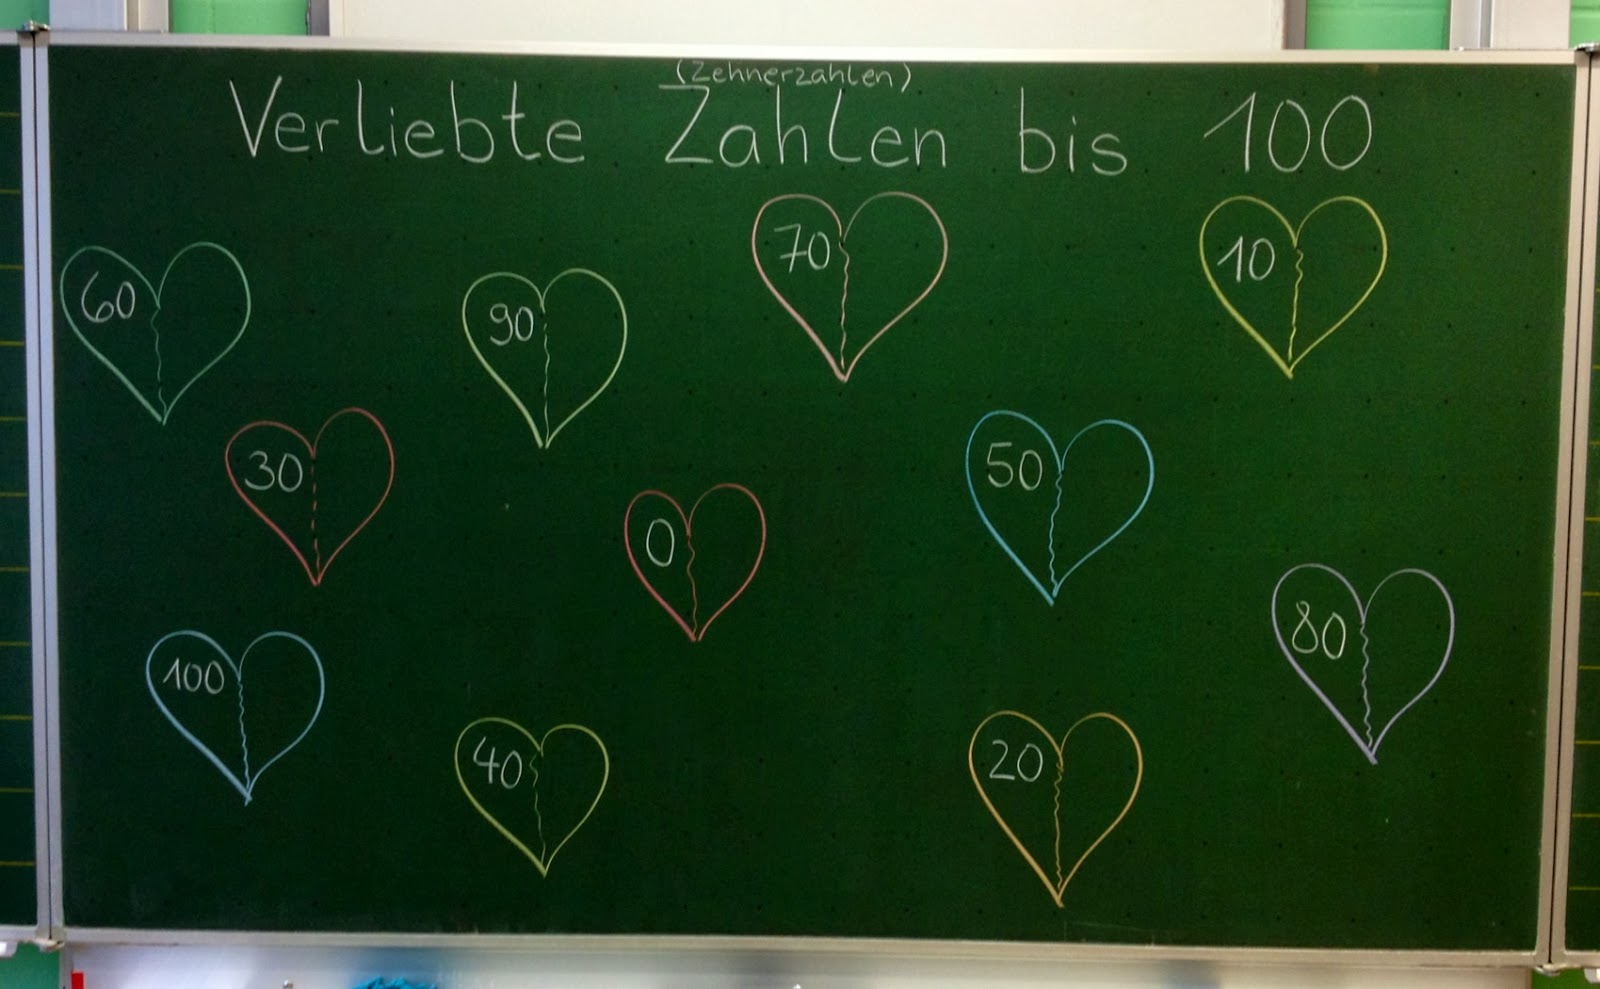 (Zehnerzahlen)
Verliebte Zahlen bis 100
70
10
60
90
30
50
0
80
100
40
20